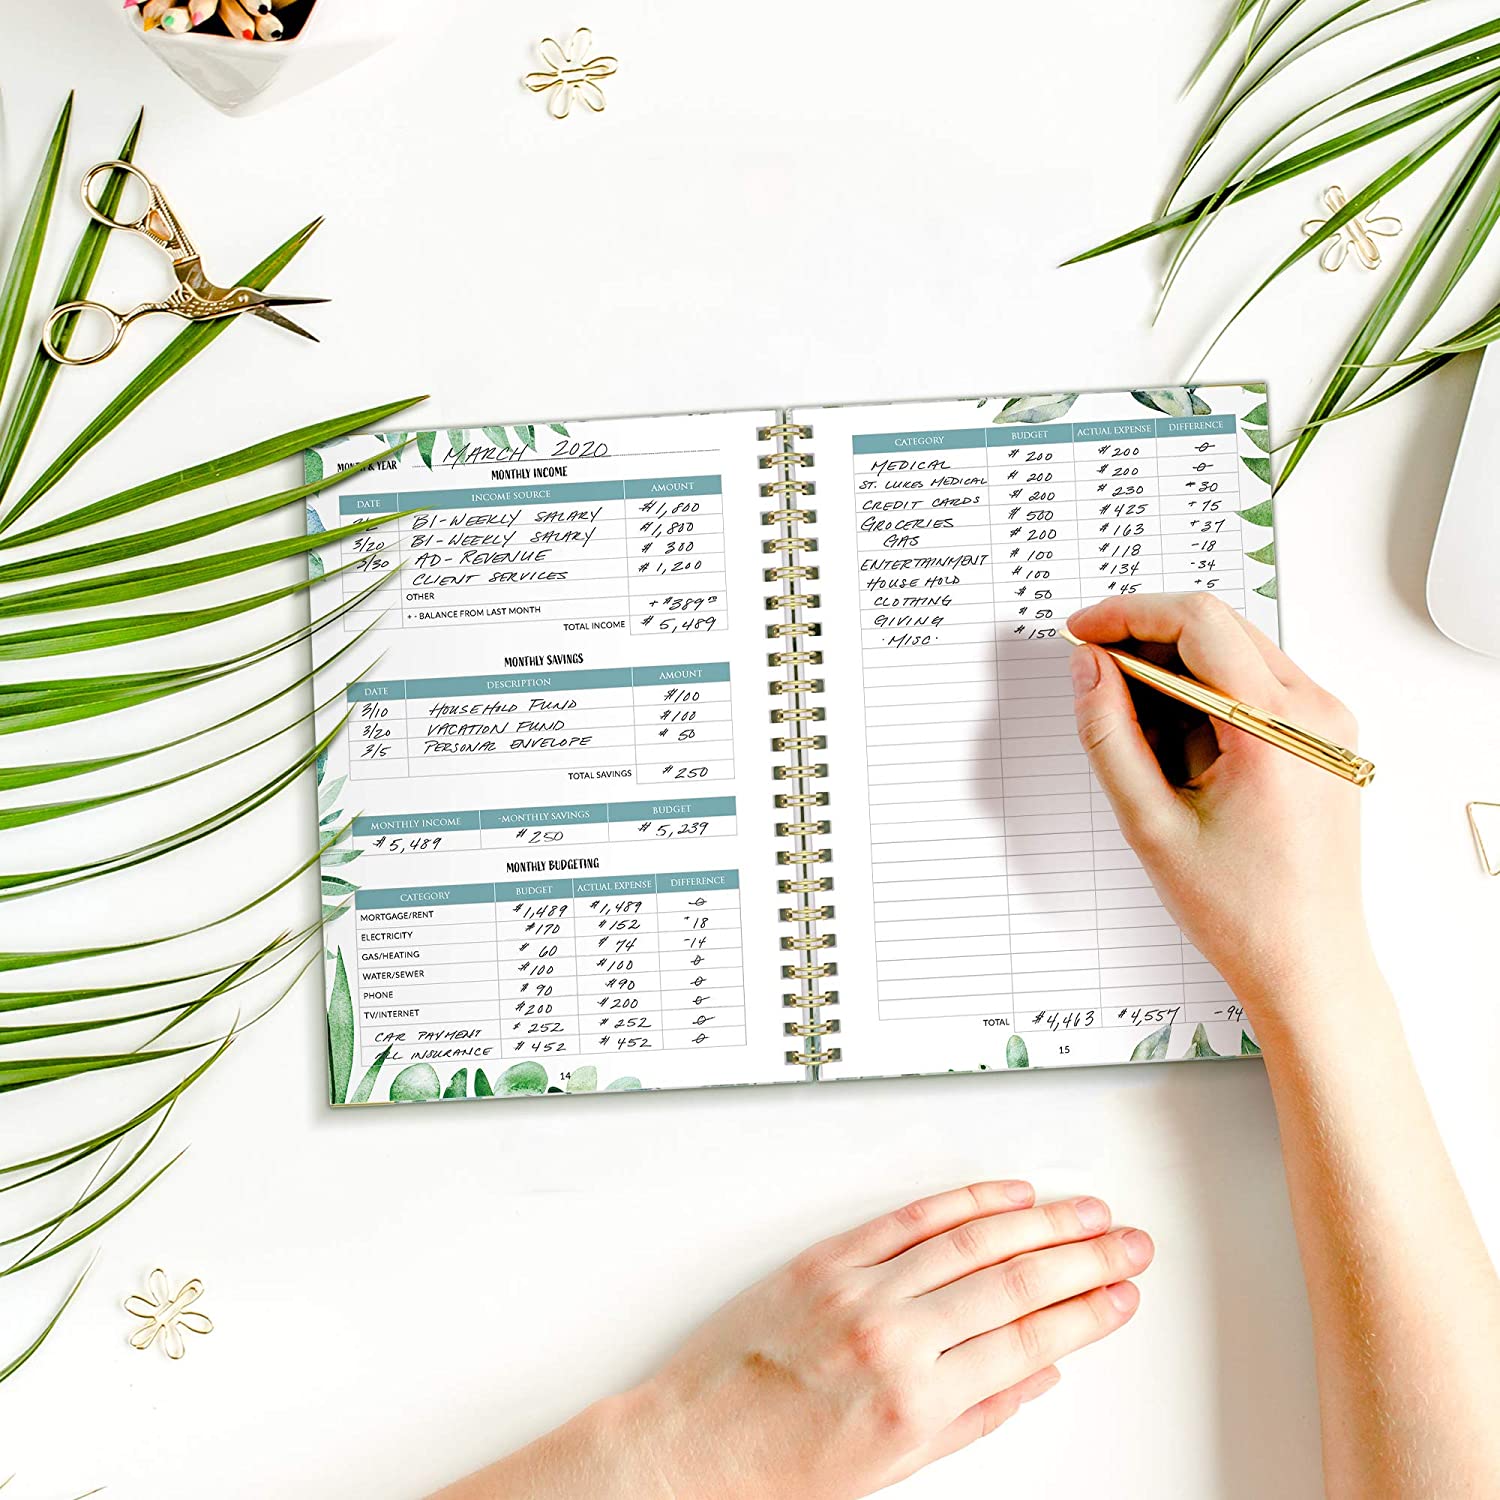 MONTH & YEAR MARCH 2020
MONTHLY INCOME
DATE INCOME SOURCE AMOUNT
BI-WEEKLY SALARY $1,800
3/20 BI-WEEKLY SALARY $1,800
3/30 AD-REVENUE $ 300
CLIENT SERVICES $1,200
OTHER
+ - BALANCE FROM LAST MONTH + $389
TOTAL INCOME $5,489
MONTHLY SAVINGS
DATE DESCRIPTION AMOUNT
3/10 HOUSEHOLD FUND $100
3/20 VACATION FUND $100
3/5 PERSONAL ENVELOPE $ 50
TOTAL SAVINGS $250
MONTHLY INCOME -MONTHLY SAVINGS BUDGET
$5,489 $250 $5,239
MONTHLY BUDGETING
CATEGORY BUDGET ACTUAL EXPENSE DIFFERENCE
MORTGAGE/RENT $1,489 $1,489 0
ELECTRICITY $170 $152 +18
GAS/HEATING $ 60 $ 74 -14
WATER/SEWER $100 $100 0
PHONE $ 90 $90 0
TV/INTERNET $200 $200 0
CAR PAYMENT $ 252 $ 252 0
INSURANCE $ 452 $ 452 0
14
CATEGORY BUDGET ACTUAL EXPENSE DIFFERENCE
MEDICAL $ 200 $200 0
ST. LUKES MEDICAL $ 200 $ 200 0
CREDIT CARDS $ 200 $ 230 30
GROCERIES $ 500 $ 425 +75
GAS $ 200 $ 163 +37
ENTERTAINMENT $ 100 $118 -18
HOUSE HOLD $ 100 $134 -34
CLOTHING $ 50 $45 +5
GIVING $ 50
·MISC· $150
TOTAL $4,463 $4,557 -94
15